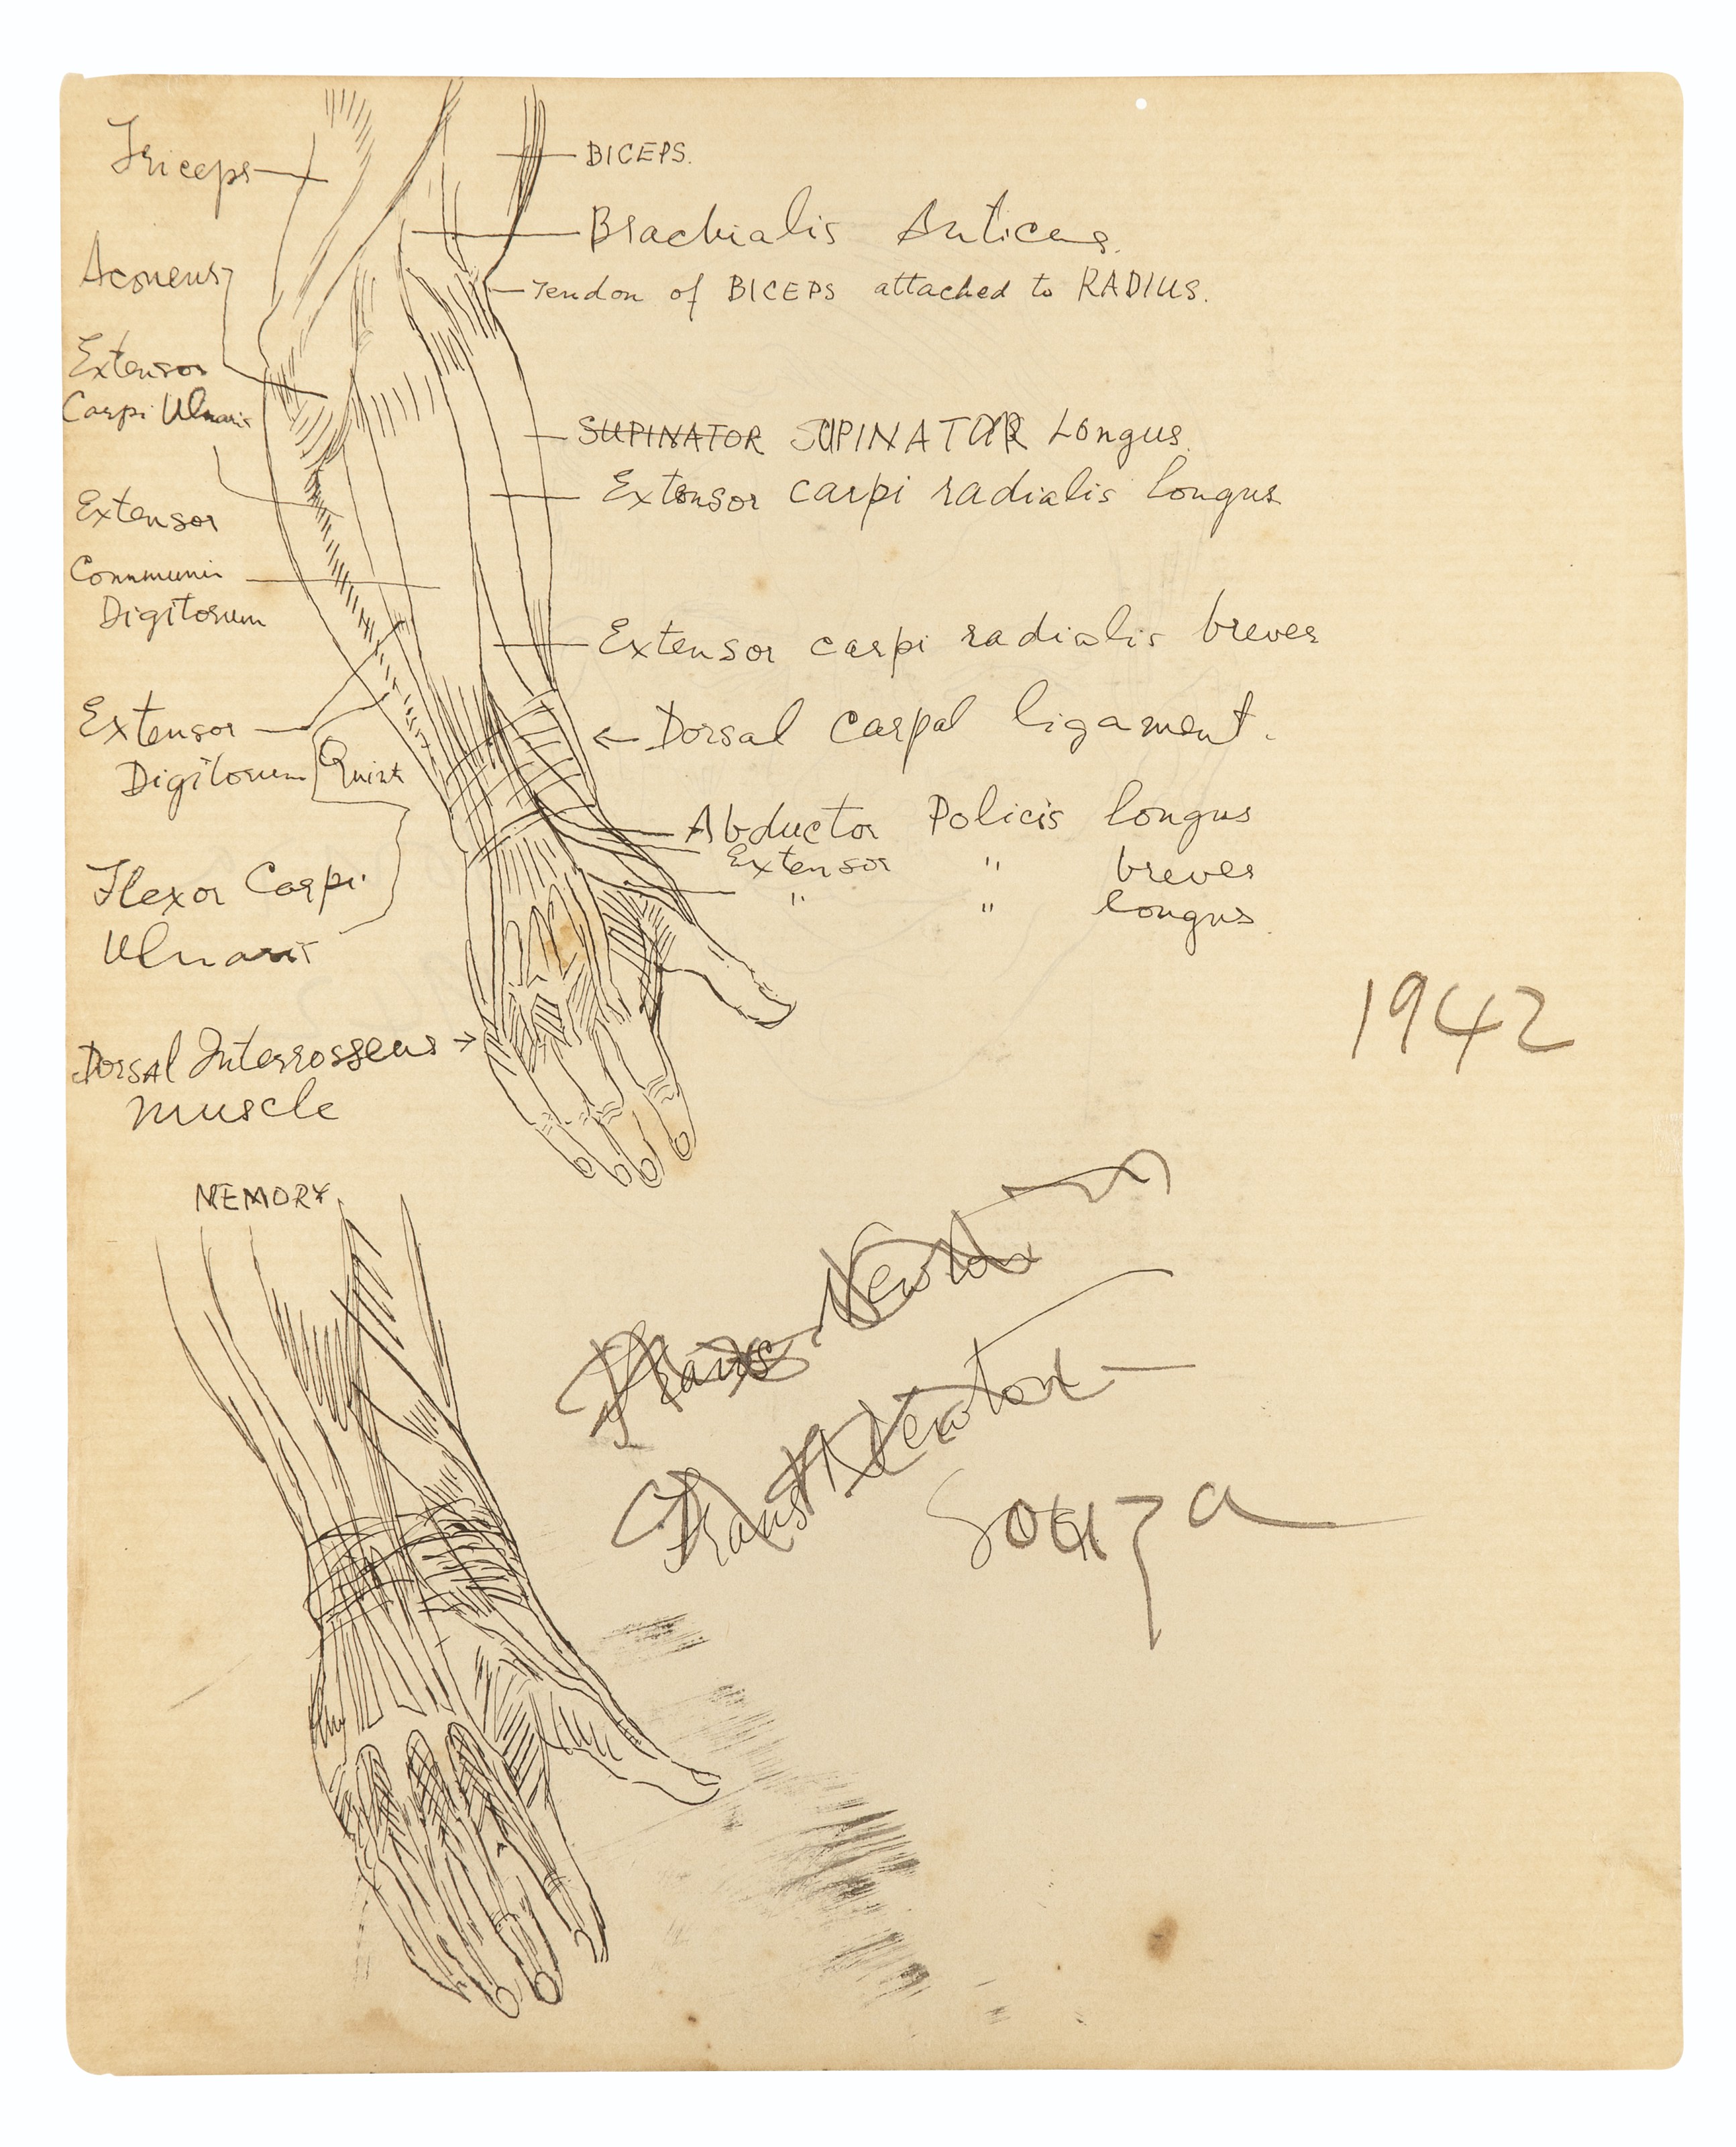 Triceps
BICEPS.
Brachialis Anticus.
Aconeus
Tendon of BICEPS attached to RADIUS.
Extensor
Carpi Ulnaris
SUPINATOR SUPINATOR Longus.
Extensor carpi radialis longus
Extensor
Communis
Digitorum
Extensor carpi radialis breves
Extensor
Digitorum Quint
Dorsal Carpal ligament.
Abductor Policis longus
Extensor " breves
" " longus.
Flexor Carpi
Ulnaris
1942
Dorsal Interrosseus
muscle
MEMORY
Frans Newton
Frans Newton
Souza